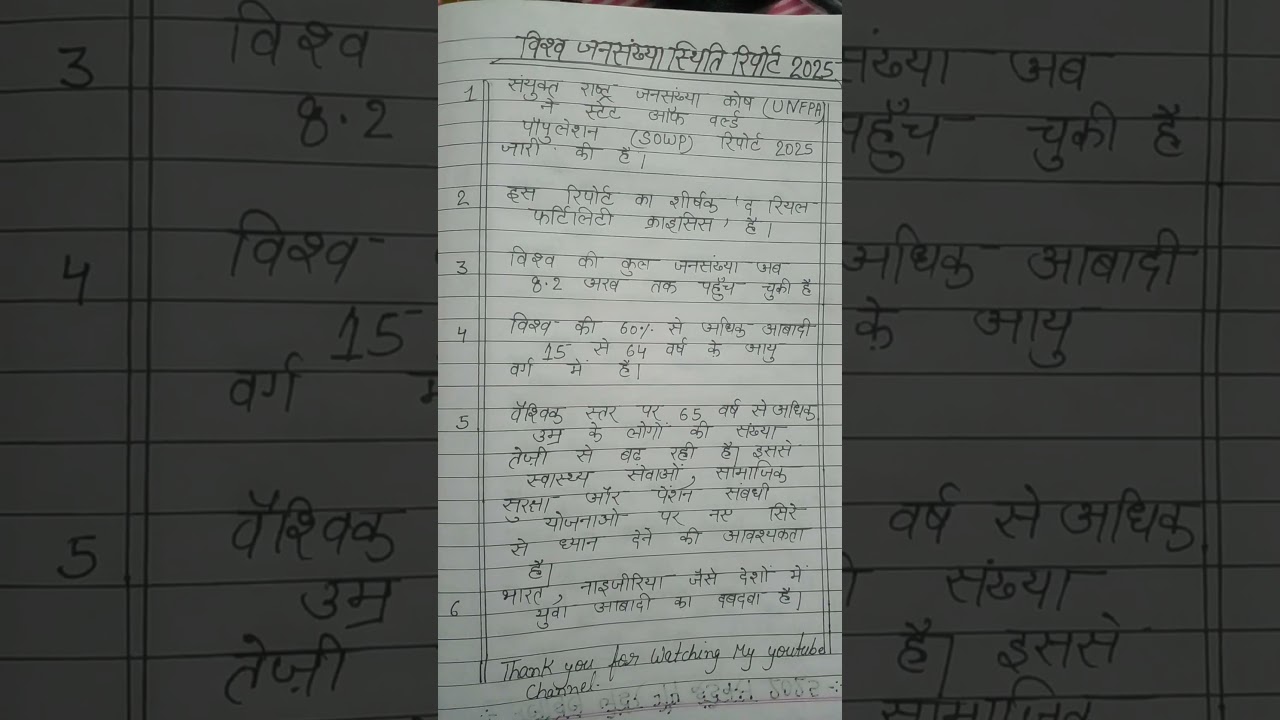 विश्व जनसंख्या स्थिति रिपोर्ट 2025
1 संयुक्त राष्ट्र जनसंख्या कोष (UNFPA)
ने स्टेट ऑफ वर्ल्ड
पॉपुलेशन (SOWP) रिपोर्ट 2025
जारी की है।
2 इस रिपोर्ट का शीर्षक 'द रियल
फर्टिलिटी क्राइसिस' है।
3 विश्व की कुल जनसंख्या अब
8.2 अरब तक पहुँच चुकी है
4 विश्व की 60% से अधिक आबादी
15 से 64 वर्ष के आयु
वर्ग में है।
5 वैश्विक स्तर पर 65 वर्ष से अधिक
उम्र के लोगों की संख्या
तेज़ी से बढ़ रही है। इससे
स्वास्थ्य सेवाओं, सामाजिक
सुरक्षा और पेंशन संबंधी
योजनाओ पर नए सिरे
से ध्यान देने की आवश्यकता
है।
6 भारत, नाइजीरिया जैसे देशों में
युवा आबादी का दबदबा है।
Thank you for Watching My youtube
Channel.